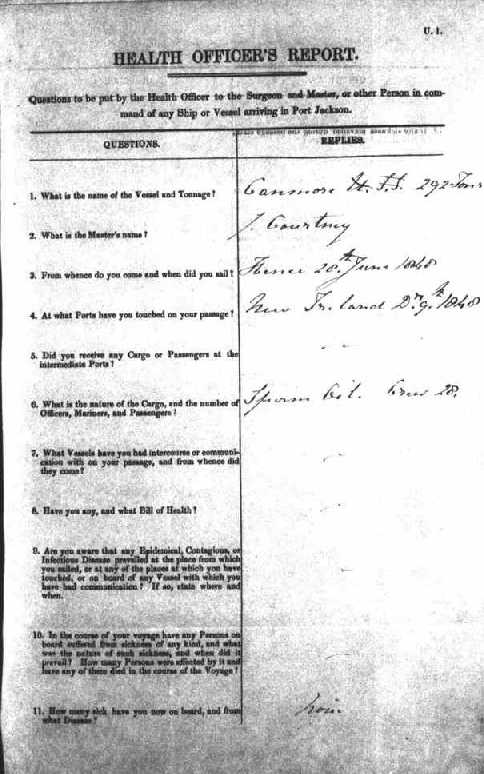 U. 1.
HEALTH OFFICER'S REPORT.
Questions to be put by the Health Officer to the Surgeon and Master, or other Person in com-
mand of any Ship or Vessel arriving in Port Jackson.
QUESTIONS.
REPLIES.
1. What is the name of the Vessel and Tonnage?
Canmore 292 Tons
2. What is the Master's name?
J. Courtney
3. From whence do you come and when did you sail?
Hence 20th June 1848
4. At what Ports have you touched on your passage?
New Ireland 1848
5. Did you receive any Cargo or Passengers at the
intermediate Ports?
6. What is the nature of the Cargo, and the number of
Officers, Mariners, and Passengers?
Sperm Oil. Crew 28.
7. What Vessels have you had intercourse or communi-
cation with on your passage, and from whence did
they come?
8. Have you any, and what Bill of Health?
9. Are you aware that any Epidemical, Contagious, or
Infectious Disease prevailed at the place from which
you sailed, or at any of the places at which you have
touched, or on board of any Vessel with which you
have had communication? If so, state where and
when.
10. In the course of your voyage have any Persons on
board suffered from sickness of any kind, and what
was the nature of such sickness, and when did it
prevail? How many Persons were affected by it and
have any of them died in the course of the Voyage?
11. How many sick have you now on board, and from
what Disease?